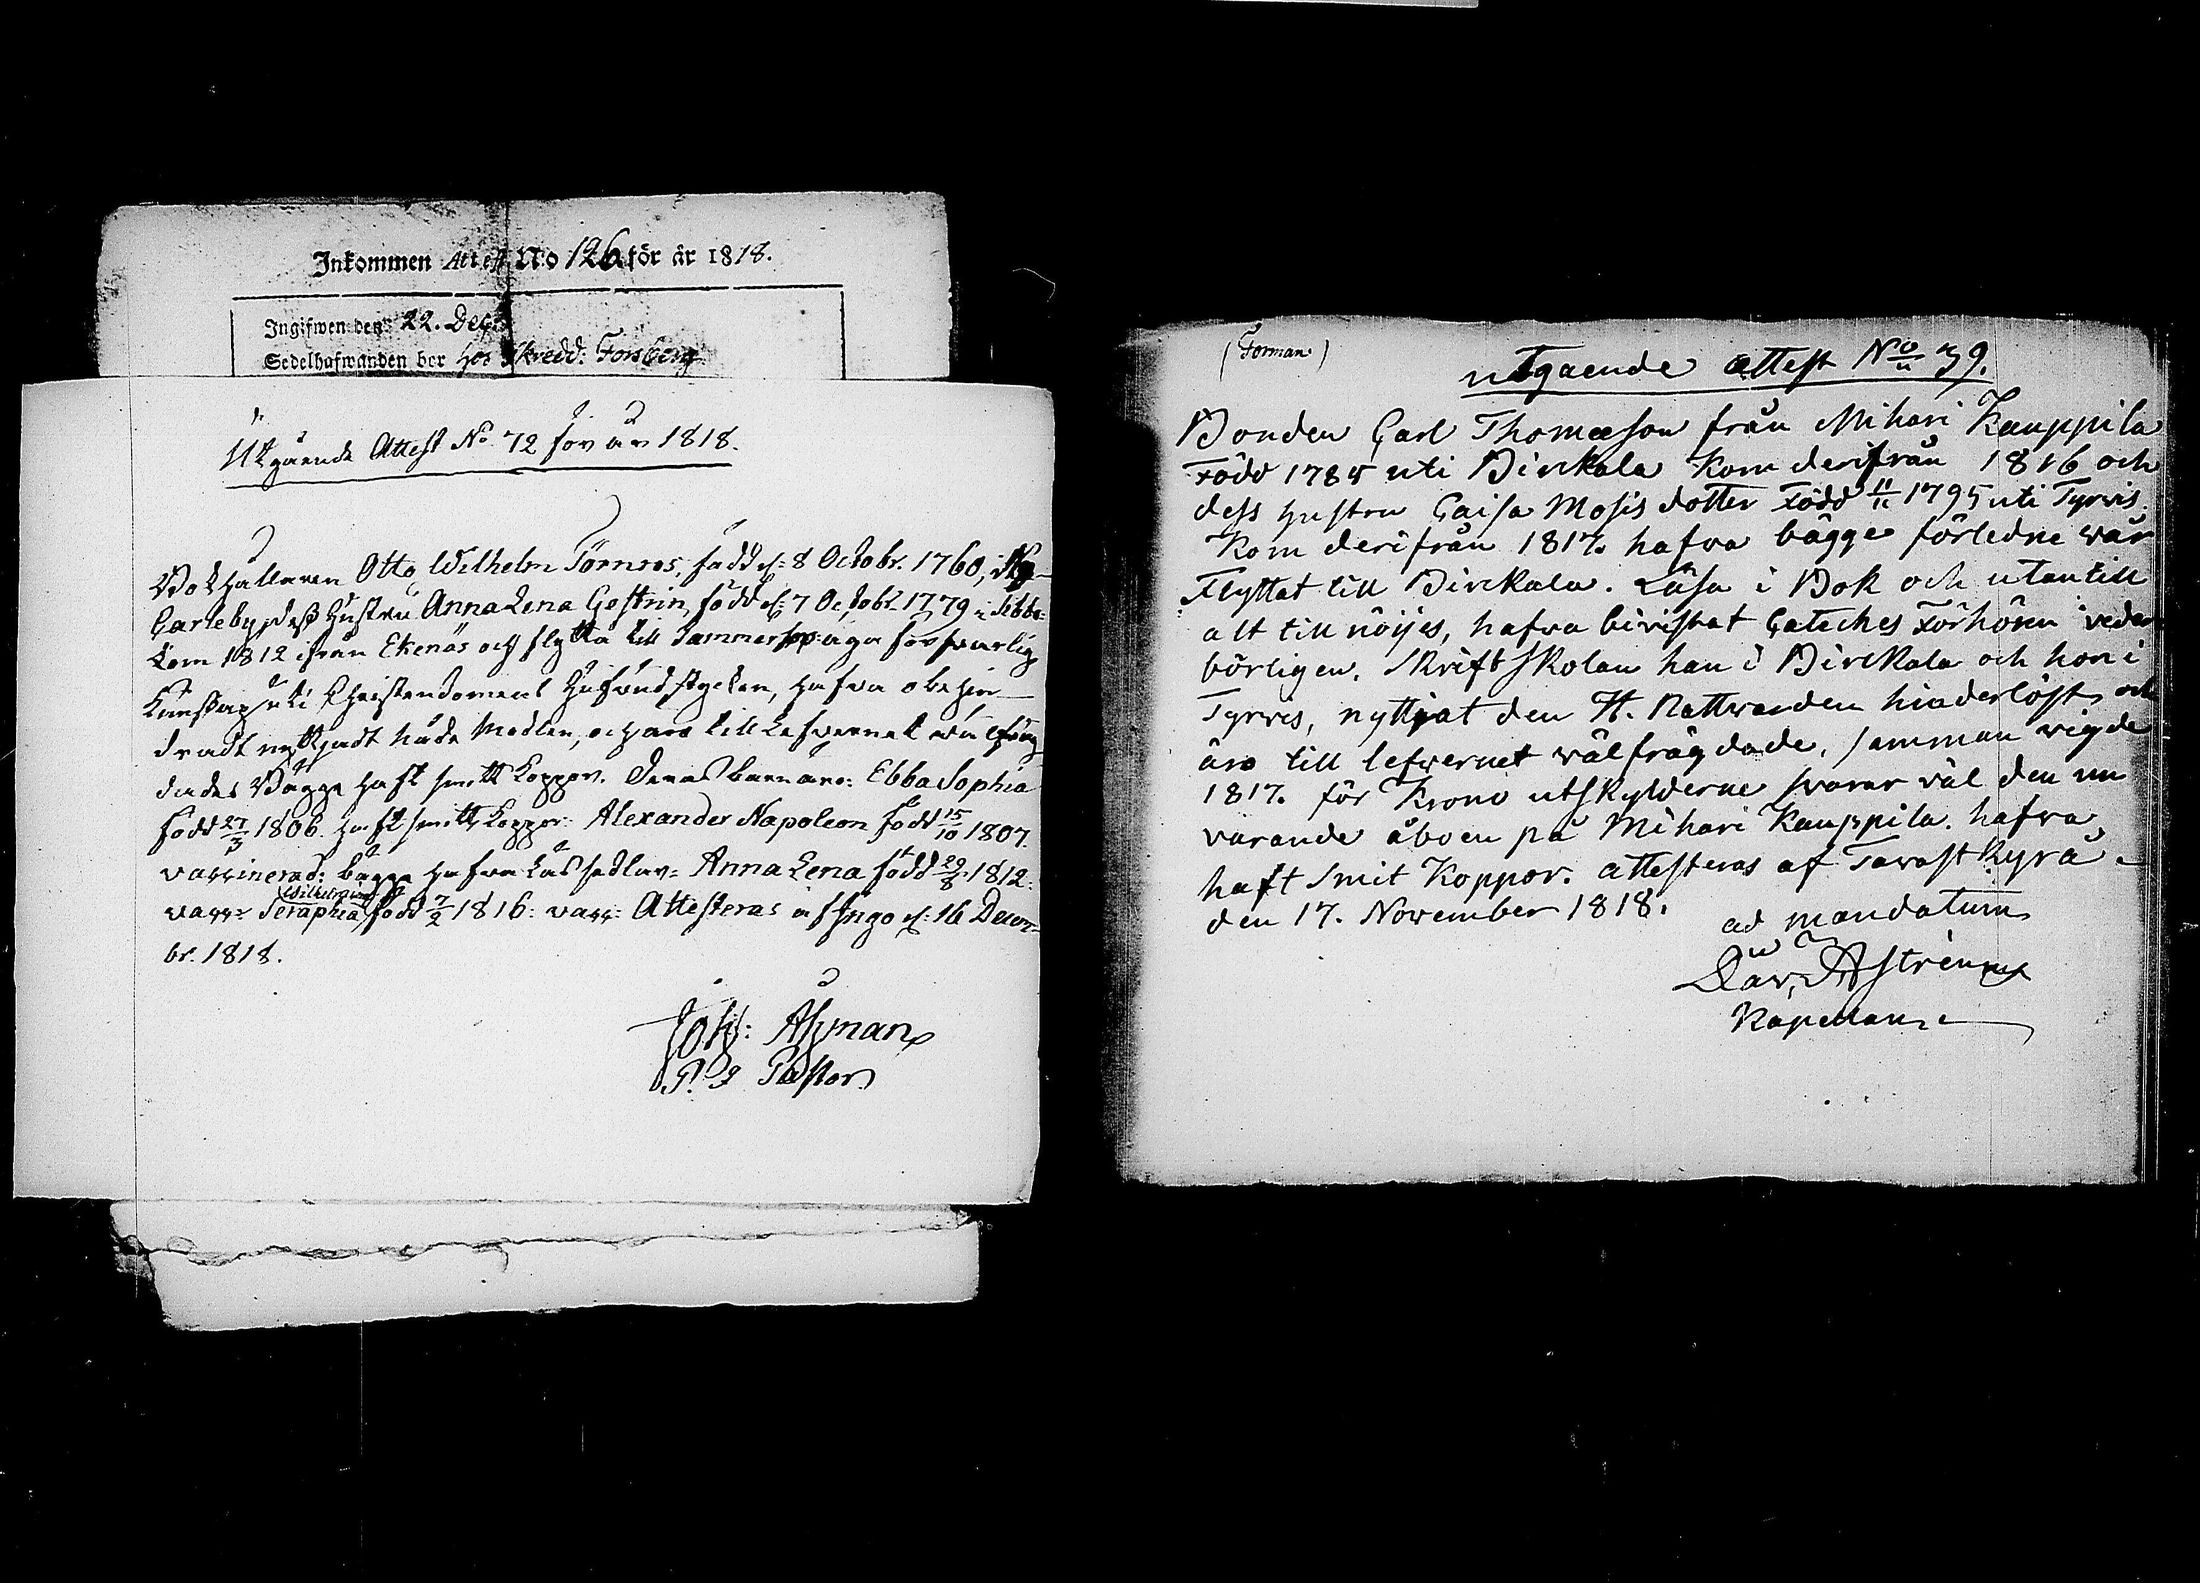 Inkommen Attest No 126 för år 1818.
Ingifwen den 22. Decbr
Sedelhafwanden bor hos Skredd: Forsberg
Utgående Attest No 72 för år 1818.
Bokhållaren Otto Wilhelm Törnros, född d: 8 Octobr. 1760, i Ny-
Carleby, dess Hustru Anna Lena Gestrin, född d: 7 Octobr. 1779 i Sibbo
kom 1812 ifrån Ekenäs och flytta till Tammerfors: äga försvarlig
Kunskap uti Christendomens Hufvudstycken, hafva obehin-
dradt nyttjadt Nåde Medlen, och äro till Lefvernet välfräg
dade. Bägge haft smittkoppor. Deras barn äro: Ebba Sophia
född 27/3 1806. haft smittkoppor: Alexander Napoleon född 15/10 1807.
vaccinerad: bägge hafva läs sedlar: Anna Lena född 29/8 1812:
vacc: Seraphia Wilhelmina född 7/2 1816: vacc: Attesteras af Ingo d: 16 Decem-
br. 1818.
Joh: Ahman
P. Pastor
(Forman)
utgaende attest No 39.
Bonden Carl Thomæson från Mihari Kauppila
Född 1785 uti Birckala kom derifrån 1816 och
dess hustru Caisa Mosis dotter Född 11/11 1795 uti Tyrvis.
kom derifrån 1817. hafva bägge förledne vår
Flyttat till Birckala. Läsa i Bok och utantill
alt till nöijes, hafva bivistat Cateches Förhören veder
börligen. Skriftskolan han i Birckala och hon i
Tyrvis, nyttjat den H. Nattvarden hinderlöst och
äro till lefvernet välfrägdade, samman vigde
1817. för Krono utskylderne svarar väl den nu
varande åboen på Mihari Kauppila. hafva
haft Smit Koppor. attesteras af Tavastkyrå
den 17. November 1818.
ad mandatum
Astrén
Kapellan